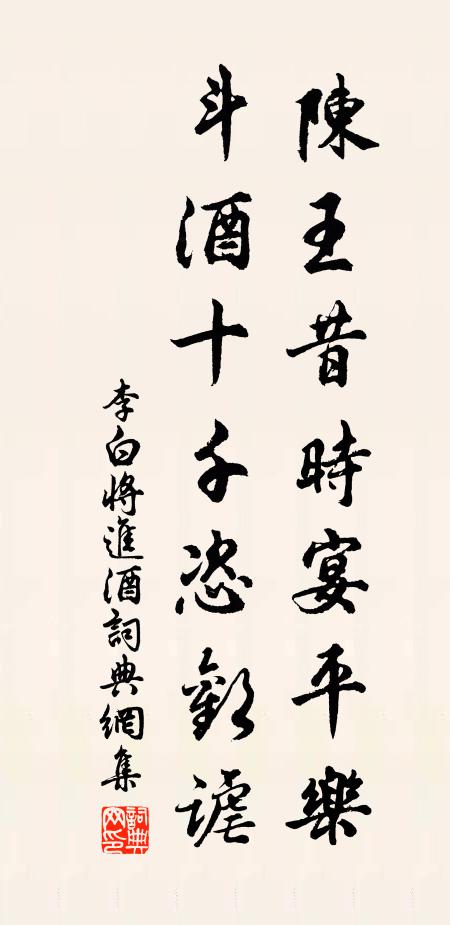 陳王昔時宴平樂
斗酒十千恣歡謔
李白將進酒詞典網集
詞典网印